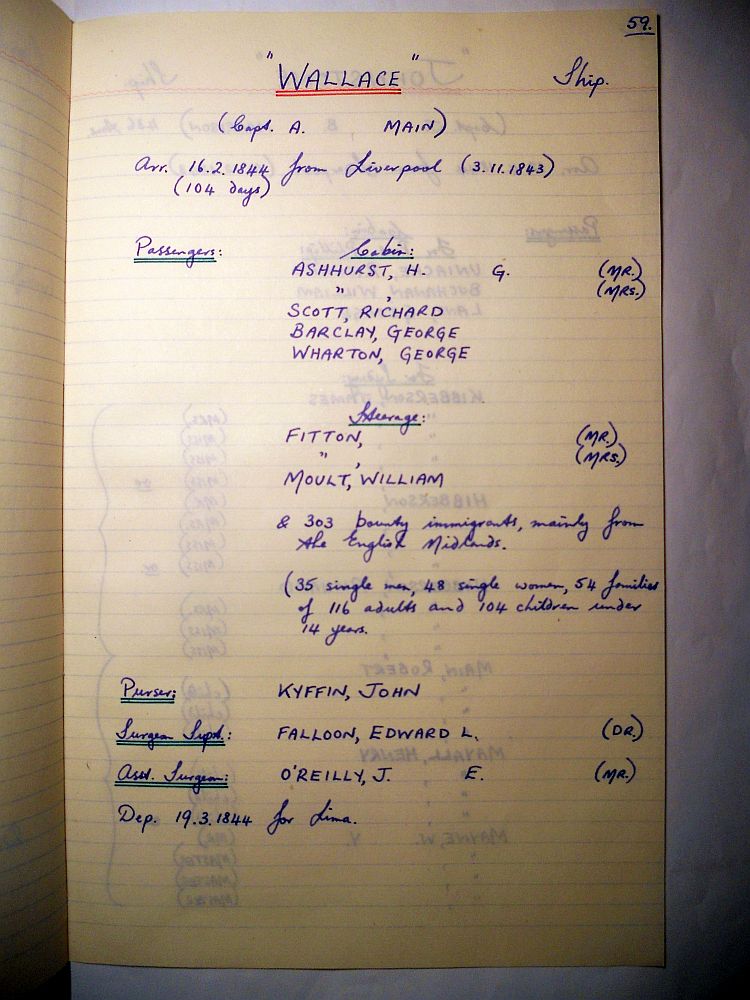 59.
"WALLACE" Ship.
(Capt. A. MAIN)
Arr. 16.2.1844 from Liverpool (3.11.1843)
(104 days)
Passengers: Cabin:
ASHHURST, H. G. (MR.)
" , (MRS.)
SCOTT, RICHARD
BARCLAY, GEORGE
WHARTON, GEORGE
Steerage:
FITTON, (MR.)
" , (MRS.)
MOULT, WILLIAM
& 303 bounty immigrants, mainly from
the English Midlands.
(35 single men, 48 single women, 54 families
of 116 adults and 104 children under
14 years.
Purser: KYFFIN, JOHN
Surgeon Supt.: FALLOON, EDWARD L. (DR.)
Asst. Surgeon: O'REILLY, J. E. (MR.)
Dep. 19.3.1844 for Lima.